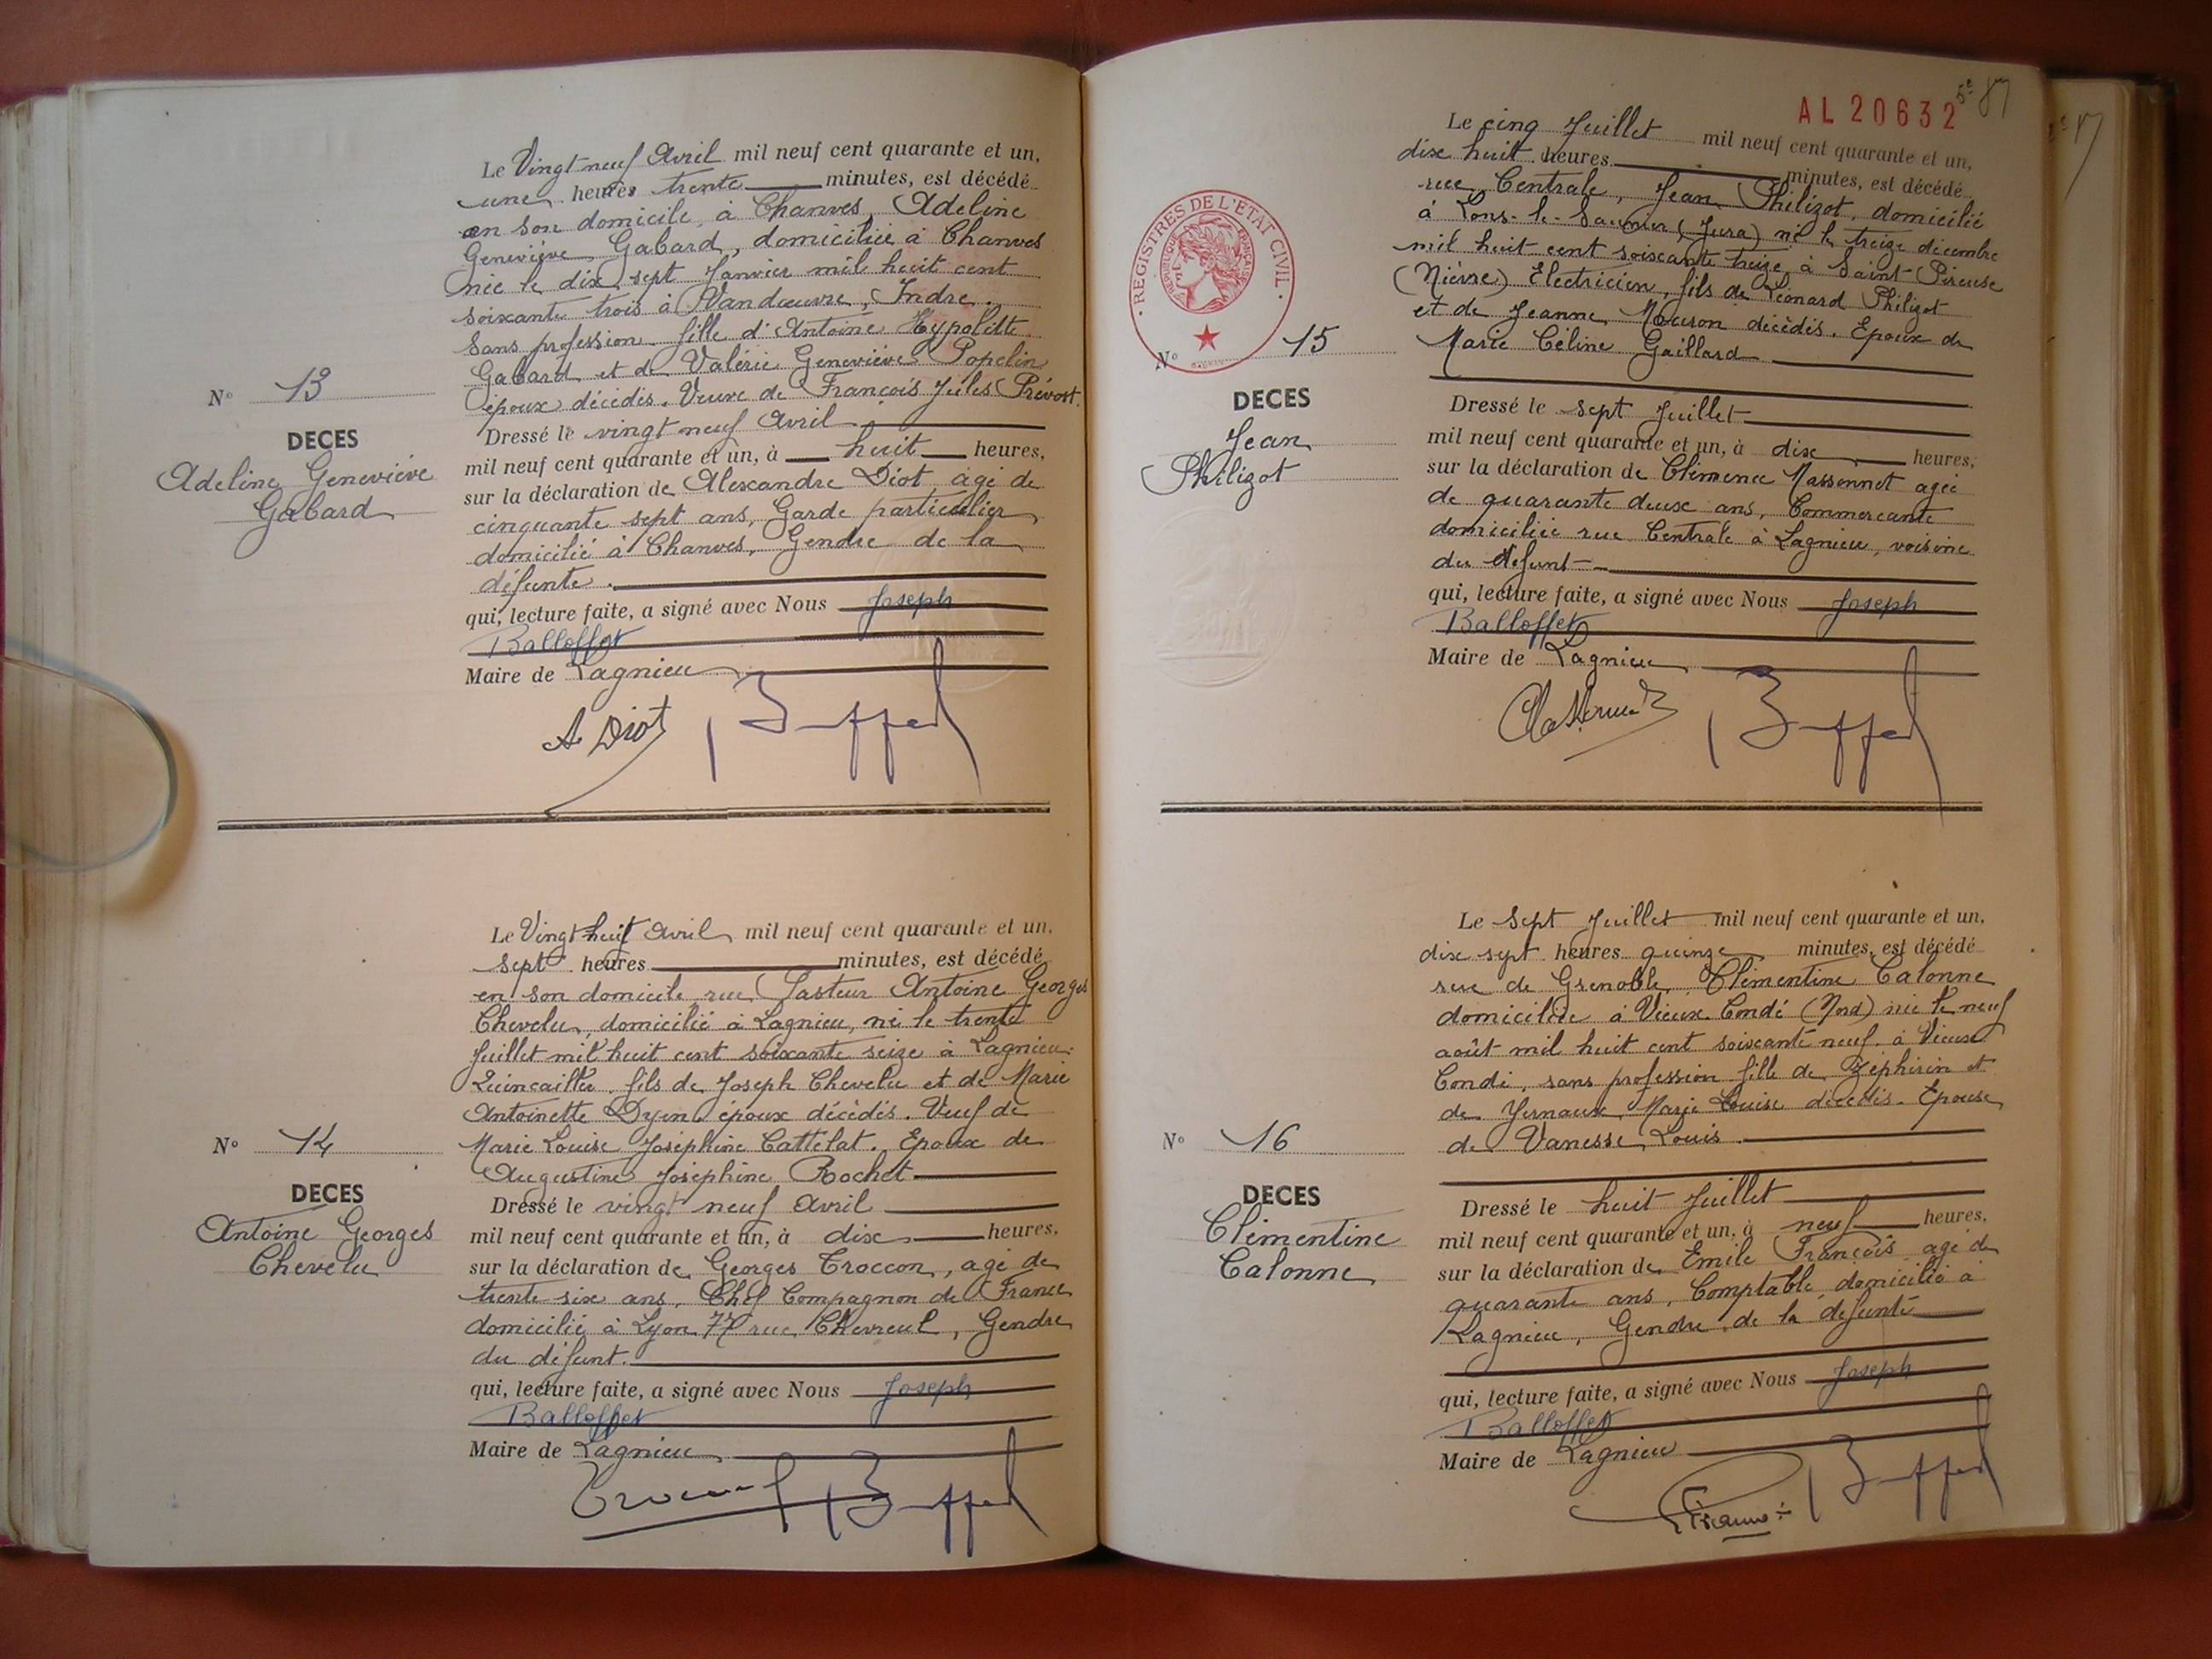 Le Vingt neuf Avril mil neuf cent quarante et un,
une heures trente minutes, est décédé
en son domicile, à Chanves, Adeline
Geneviève Gabard, domiciliée à Chanves
née le dix sept Janvier mil huit cent
soixante trois à Vandœuvre, Indre.
Sans profession. fille d'Antoine Hypolitte
Gabard et de Valérie Geneviève Popelin
époux décédés. Veuve de François Jules Prévost.
N° 13
DECES
Adeline Geneviève
Gabard
Dressé le vingt neuf Avril
mil neuf cent quarante et un, à huit heures,
sur la déclaration de Alexandre Diot âgé de
cinquante sept ans, Garde particulier
domicilié à Chanves, Gendre de la
défunte.
qui, lecture faite, a signé avec Nous Joseph
Balloffet
Maire de Lagnieu
A Diot
Le Vingt huit Avril mil neuf cent quarante et un,
sept heures minutes, est décédé
en son domicile rue Pasteur Antoine Georges
Chevelu, domicilié à Lagnieu, né le trente
Juillet mil huit cent soixante seize à Lagnieu.
Quincailler. fils de Joseph Chevelu et de Marie
Antoinette Dyen. époux décédés. Veuf de
Marie Louise Joséphine Cattélat. Epoux de
Augustine Joséphine Rochet
N° 14
DECES
Antoine Georges
Chevelu
Dressé le vingt neuf Avril
mil neuf cent quarante et un, à dix heures,
sur la déclaration de Georges Troccon, âgé de
trente six ans, Chef Compagnon de France
domicilié à Lyon 77 rue Chevreul, Gendre
du défunt.
qui, lecture faite, a signé avec Nous Joseph
Balloffet
Maire de Lagnieu
AL 20632
5e 87
Le cinq Juillet mil neuf cent quarante et un,
dix huit heures minutes, est décédé
rue Centrale, Jean Philizot, domicilié
à Lons-le-Saunier (Jura) né le treize décembre
mil huit cent soixante treize à Saint Péreuse
(Nièvre) Electricien, fils de Léonard Philizot
et de Jeanne Mouson décédés. Epoux de
Marie Céline Gaillard
REGISTRES DE L'ETAT CIVIL
N° 15
DECES
Jean
Philizot
Dressé le sept Juillet
mil neuf cent quarante et un, à dix heures,
sur la déclaration de Clémence Massonnet agée
de quarante deux ans, Commercante
domiciliée rue Centrale à Lagnieu, voisine
du défunt
qui, lecture faite, a signé avec Nous Joseph
Balloffet
Maire de Lagnieu
Le Sept Juillet mil neuf cent quarante et un,
dix sept heures quinze minutes, est décédé
rue de Grenoble, Clémentine Calonne
domiciliée à Vieux Condé (Nord) née le neuf
août mil huit cent soixante neuf à Vieux
Condé, sans profession fille de Zéphirin et
de Yernaux Marie Louise décédés. Epouse
de Vanesse Louis
N° 16
DECES
Clémentine
Calonne
Dressé le huit Juillet
mil neuf cent quarante et un, à neuf heures,
sur la déclaration de Emile François agé de
quarante ans, Comptable domicilié à
Lagnieu, Gendre de la défunte
qui, lecture faite, a signé avec Nous Joseph
Balloffet
Maire de Lagnieu